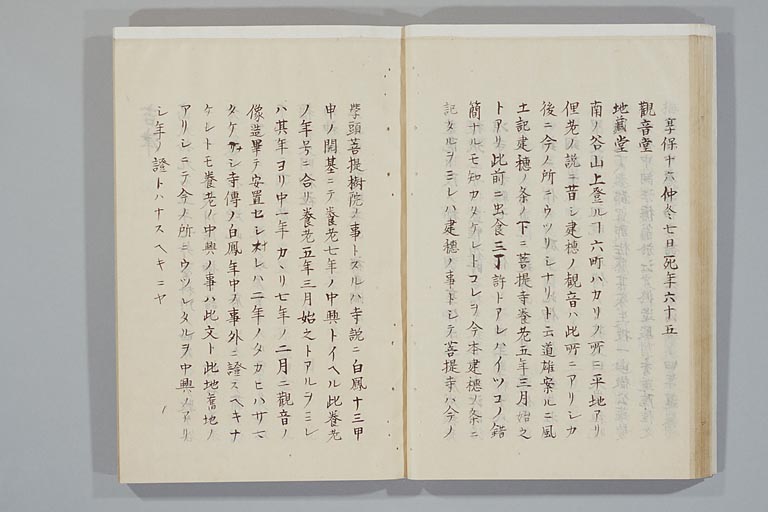 享保十六仲冬七日死年六十五
觀音堂
地藏堂
南ノ谷山上登ルヿ六町ハカリノ所ニ平地アリ
俚老ノ説ニ昔シ建穂ノ觀音ハ此所ニアリシカ
後ニ今ノ所ニウツリシナリト云道雄案ルニ風
土記建穂ノ条ノ下ニ菩提寺養老五年三月始之
トアリ此前ニ出食三丁許トアレハイツコノ錯
簡ナルモ知カタケレトコレヲ今本建穂ノ条ニ
記タルヲミレハ建穂ノ事トシテ菩提寺ハ今ノ
學頭菩提樹院ノ事トスルハ寺説ニ白鳳十三甲
申ノ開基ニテ養老七年ノ中興トイヘル此養老
ノ年号ニ合リ養老五年三月始之トアルヲミレ
ハ其年ヨリ中一年カヽリ七年ノ二月ニ觀音ノ
像造畢テ安置セシナレハ二年ノタカヒハサマ
タケナシ寺傳ノ白鳳年中ノ事外ニ證スヘキナ
ケレトモ養老ノ中興ノ事ハ此文ト此地舊地ノ
アリシニテ今ノ所ニウツレタルヲ中興ノアリ
シ年ノ證トハナスヘキニヤ